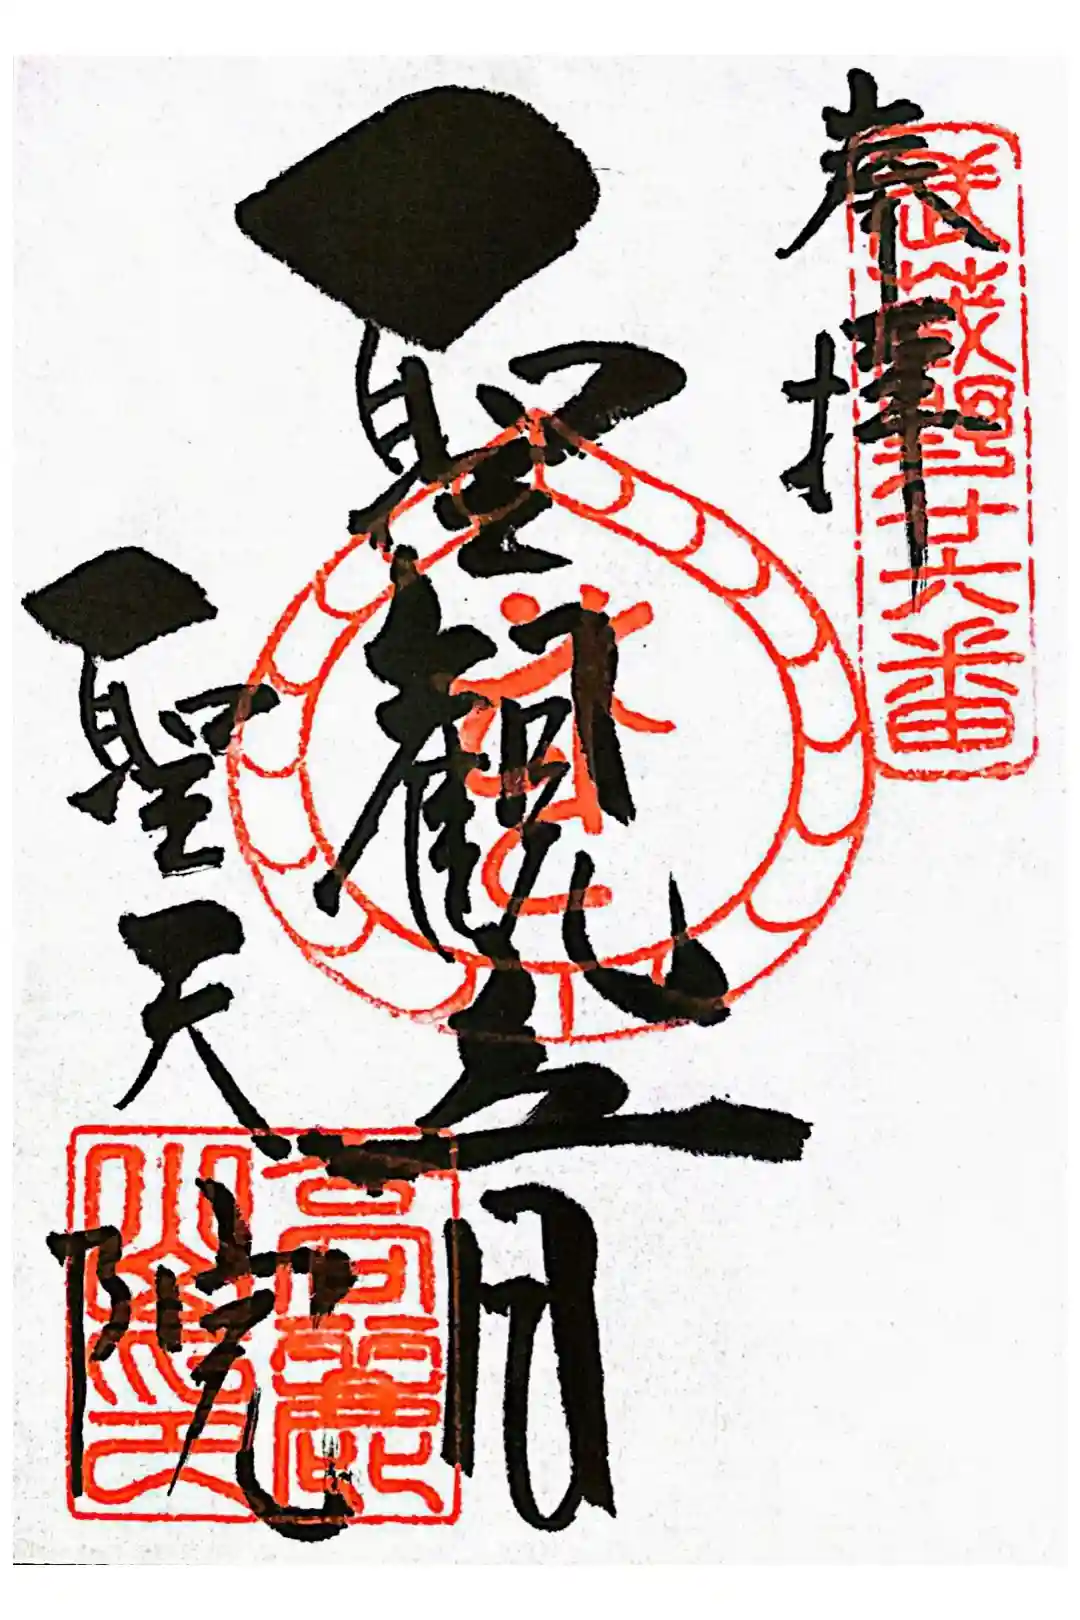 奉拝
武蔵野廿六番
聖観音
聖天院
高麗
山